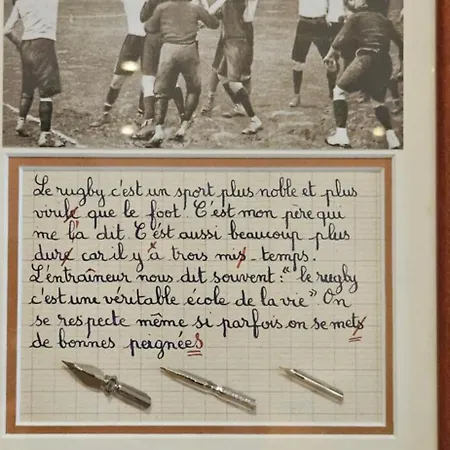 Le rugby c'est un sport plus noble et plus
virile que le foot. C'est mon père qui
me l'a dit. C'ést aussi beaucoup plus
dure car il y a trois mis-temps.
L'entraîneur nous dit souvent : "le rugby
c'est une véritable école de la vie". On
se respecte même si parfois on se mets
de bonnes peignées